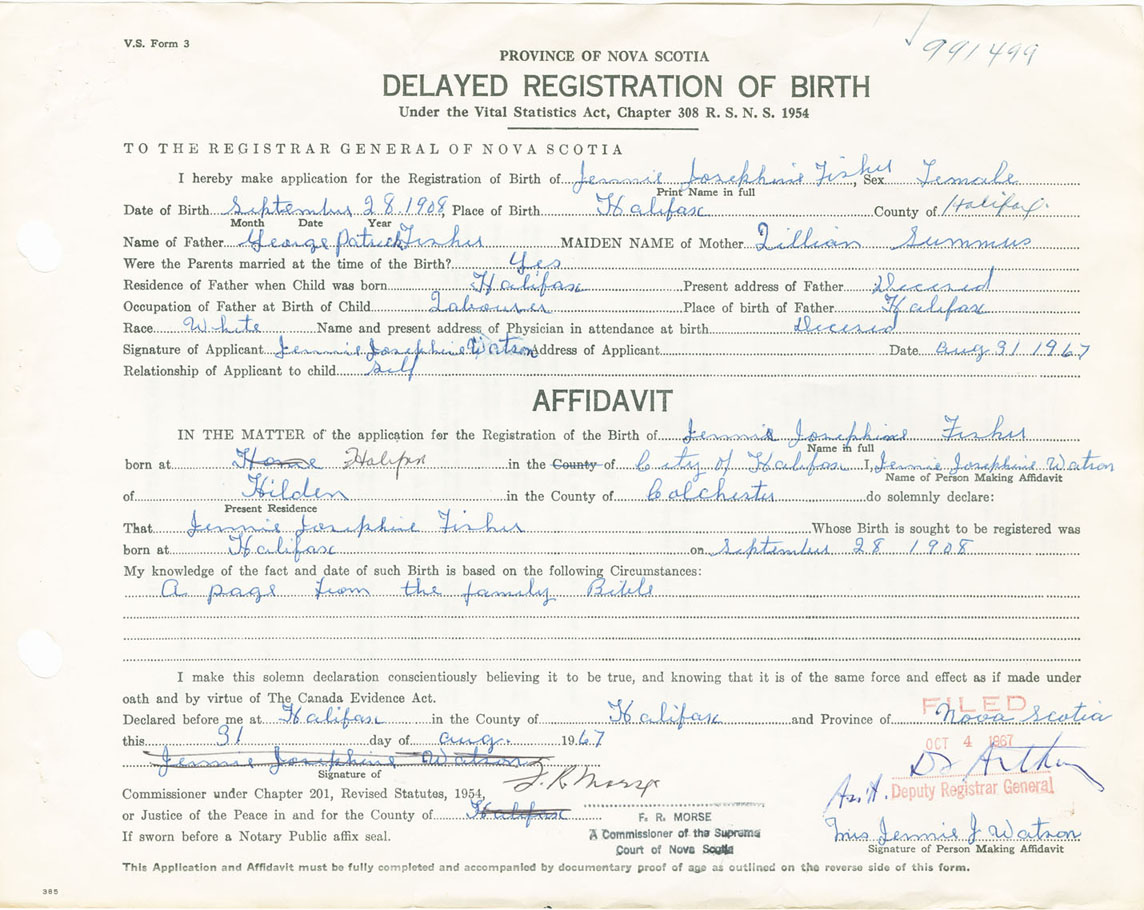 V.S. Form 3
991499
PROVINCE OF NOVA SCOTIA
DELAYED REGISTRATION OF BIRTH
Under the Vital Statistics Act, Chapter 308 R. S. N. S. 1954
TO THE REGISTRAR GENERAL OF NOVA SCOTIA
I hereby make application for the Registration of Birth of Jennie Josephine Fisher, Sex Female
Print Name in full
Date of Birth September 28 1908, Place of Birth Halifax County of Halifax
Month Date Year
Name of Father George Patrick Fisher MAIDEN NAME of Mother Lillian Summers
Were the Parents married at the time of the Birth? Yes
Residence of Father when Child was born Halifax Present address of Father Decesed
Occupation of Father at Birth of Child Labourer Place of birth of Father Halifax
Race White Name and present address of Physician in attendance at birth Decesed
Signature of Applicant Jennie Josephine Watson Address of Applicant Date Aug 31 1967
Relationship of Applicant to child self
AFFIDAVIT
IN THE MATTER of the application for the Registration of the Birth of Jennie Josephine Fisher
Name in full
born at Home Halifax in the County of City of Halifax I, Jennie Josephine Watson
Name of Person Making Affidavit
of Hilden in the County of Colchester do solemnly declare:
Present Residence
That Jennie Josephine Fisher Whose Birth is sought to be registered was
born at Halifax on September 28 1908
My knowledge of the fact and date of such Birth is based on the following Circumstances:
A page from the family Bible
I make this solemn declaration conscientiously believing it to be true, and knowing that it is of the same force and effect as if made under
oath and by virtue of The Canada Evidence Act.
Declared before me at Halifax in the County of Halifax and Province of Nova Scotia
FILED
this 31 day of Aug. 1967
OCT 4 1967
Jennie Josephine Watson
Signature of
F. R. Morse
Commissioner under Chapter 201, Revised Statutes, 1954,
Ass't. Deputy Registrar General
or Justice of the Peace in and for the County of Halifax
F. R. MORSE
If sworn before a Notary Public affix seal.
A Commissioner of the Supreme
Court of Nova Scotia
Mrs Jennie J. Watson
Signature of Person Making Affidavit
This Application and Affidavit must be fully completed and accompanied by documentary proof of age as outlined on the reverse side of this form.
385